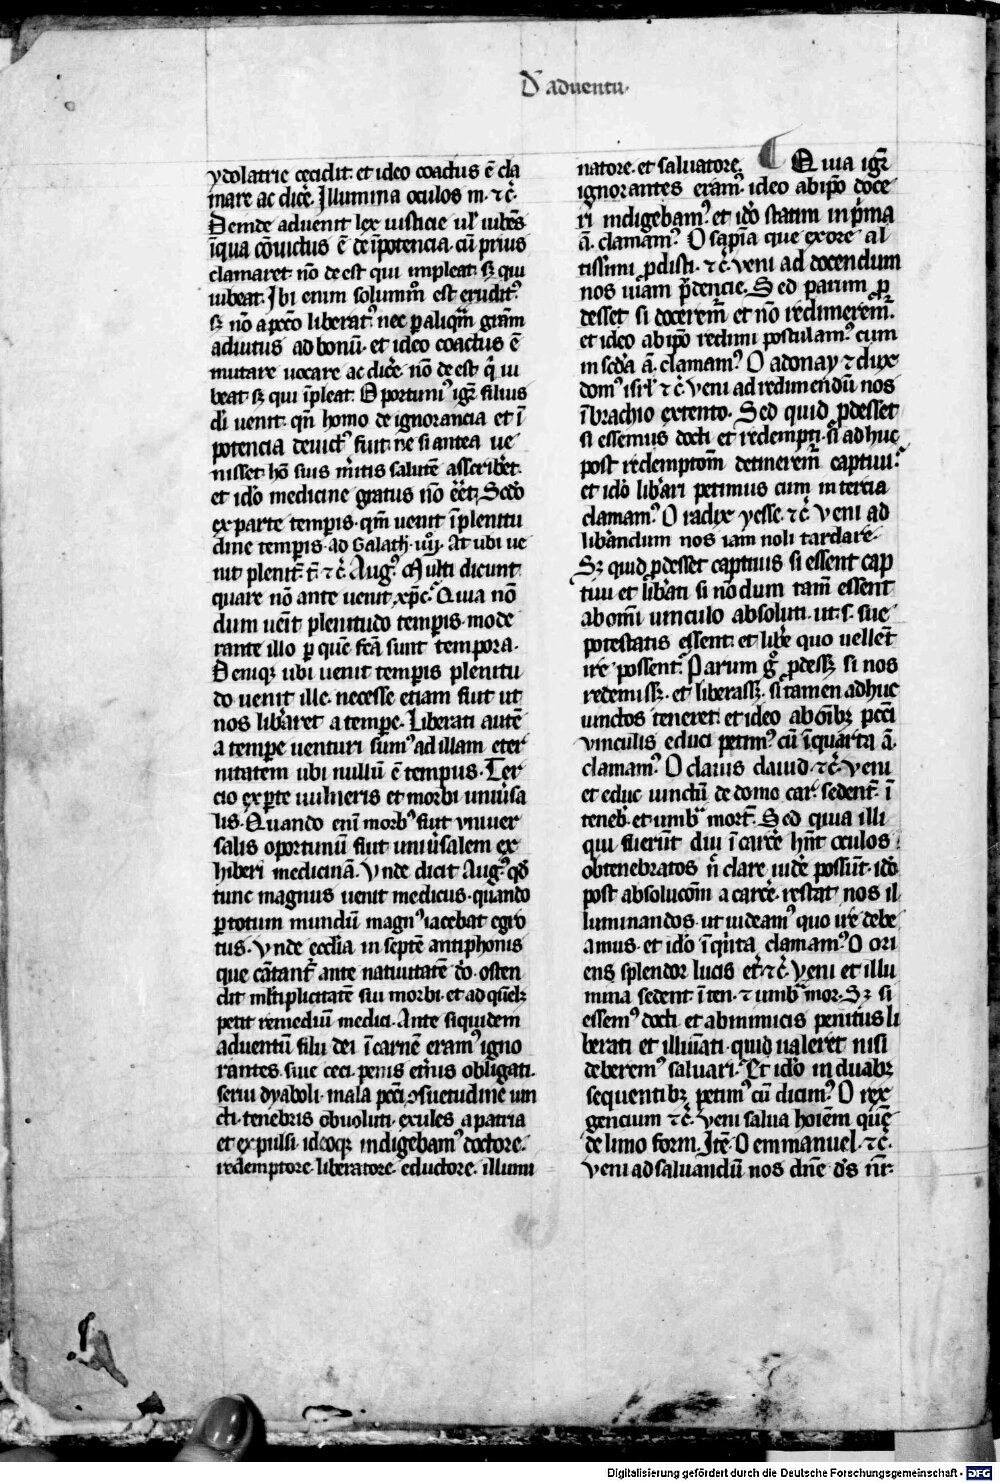 D' aduentu.
ydolatrie cecidit. et ideo coactus ē cla
mare ac dic̄e. Illumina oculos m. ⁊ c̄.
Deinde aduenit lex iusticie ul' iubēs
in qua cōuictus ē de īpotencia. cū prius
clamaret. nō de est qui impleat. sꝫ qui
iubeat. Ibi enim solummō est eruditꝰ
sꝫ nō a pcc̄o liberatꝰ nec ꝑ aliqm̄ grām
adiutus ad bonū. et ideo coactus ē
mutare uocare ac dic̄e. nō de est q̄ iu
beat sꝫ qui īpleat. Oportuniꝰ igr̄ filius
di' uenit. qn̄ homo de ignorancia et ī
potencia deuictꝰ fuit. ne si antea ue
nisset. hō suis m̄itis salutē asscrib̄et.
et idō medicine gratus nō eēt. Scdō
ex parte temꝑis. qm̄ uenit ī plenitu
dine temꝑis. ad Galath. iiij. At ubi ue
nit plenit̄. t̄. ⁊ c̄. Augꝰ. Multi dicunt
quare nō ante uenit xp̄c. Quia nō
dum uēit plenitudo temꝑis. mode
rante illo ꝑ quē fcā sunt tempora.
Deniqꝫ ubi uenit temꝑis plenitu
do uenit ille. necesse etiam fuit ut
nos lib̄aret a temꝑe. Liberati autē
a temꝑe uenturi sumꝰ ad illam eter
nitatem ubi nullū ē tempus. Ter
cio ex ꝑte uulneris et morbi uniūsa
lis. Quando enī morbꝰ fuit vniuer
salis oportunū fuit uniūsalem ex
hiberi medicinā. Vnde dicit Augꝰ. qd̄
tunc magnus uenit medicus. quando
ꝑ totum mundū magnꝰ iacebat egro
tus. Vnde eccl̄ia in septē antiphonis
que cātant̄ ante natiuitatē dō. osten
dit mltiplicitatē sui morbi. et ad qd'lꝫ
petit remediū medici. Ante siquidem
aduentū filii dei ī carnē eramꝰ igno
rantes. siue ceci. penis et̄nis obligati.
serui dyaboli. mala pcc̄i ꝯsuetudine uin
cti. tenebris obuoluti. exules a patria
et expulsi. ideoqꝫ indigebamꝰ doctore.
redemptore. liberatore. eductore. illumi
natore. et saluatore. ¶ Quia igr̄
ignorantes eramꝰ ideo ab ipō doce
ri indigebamꝰ. et idō statim in p̄ma
a. clamamꝰ. O sapīa que ex ore al
tissimi prodisti. ⁊ c̄. veni ad docendum
nos uiam pr̄dencie. Sed parum ꝓ
desset si docerem̄ et nō redimerem̄.
et ideo ab ipō redimi postulamꝰ. cum
in sed̄a a. clamamꝰ. O adonay ⁊ dux
domꝰ isrl' ⁊ c̄. veni ad redimendū nos
ī brachio extento. Sed quid ꝓdesset
si essemus docti et redempti. si adhuc
post redemptōm detinerem̄ captiui.
et idō lib̄ari petimus cum in tercia
clamamꝰ. O radix yesse. ⁊ c̄. veni ad
lib̄andum nos iam noli tardare.
Sꝫ quid ꝓdesset captiuis si essent cap
tiui et lib̄ati si nō dum tam̄ essent
ab om̄i uinculo absoluti. ut. s. sue
potestatis essent. et lib̄e quo uellēt
ire possent. Parum g° ꝓdessꝫ si nos
redemissꝫ. et liberassꝫ. si tamen adhuc
uinctos teneret. et ideo ab oībꝫ pcc̄i
vinculis educi petimꝰ. cū ī quarta a.
clamamꝰ. O clauis dauid. ⁊ c̄. veni
et educ uinctū de domo car̄. sedent̄. ī
teneb̄. et umb̄ mort̄. Sed quia illi
qui fuerūt diu ī carc̄e hn̄t oculos
obtenebratos n̄ clare uid̄e possūt. idō
post absolucōm a carc̄e. restat nos il
luminandos. ut uideamꝰ quo ire debe
amus. et idō ī q̄nta clamamꝰ. O ori
ens splendor lucis et̄. ⁊ c̄. Veni et illu
mina sedent. ī ten. ⁊ umb̄ mor. Sꝫ si
essemꝰ docti et ab inimicis penitus li
berati et illuīati. quid ualeret nisi
deberemꝰ saluari. Et idō in duabꝫ
sequentibꝫ petimꝰ. cū dicimꝰ. O rex
gencium ⁊ c̄. veni salua hoīem quē
de limo form. Itē. O emmanuel. ⁊ c̄.
Veni ad saluandū nos dn̄e d's nr̄.
Digitalisierung gefördert durch die Deutsche Forschungsgemeinschaft - DFG